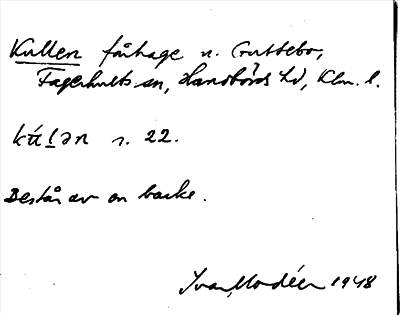 Kullen fårhage n. Guttebo,
Fagerhults sn, Handbörds hd, Klm. l.
kúl̠ən r. 22.
Består av en backe.
Ivar Modéer 1948